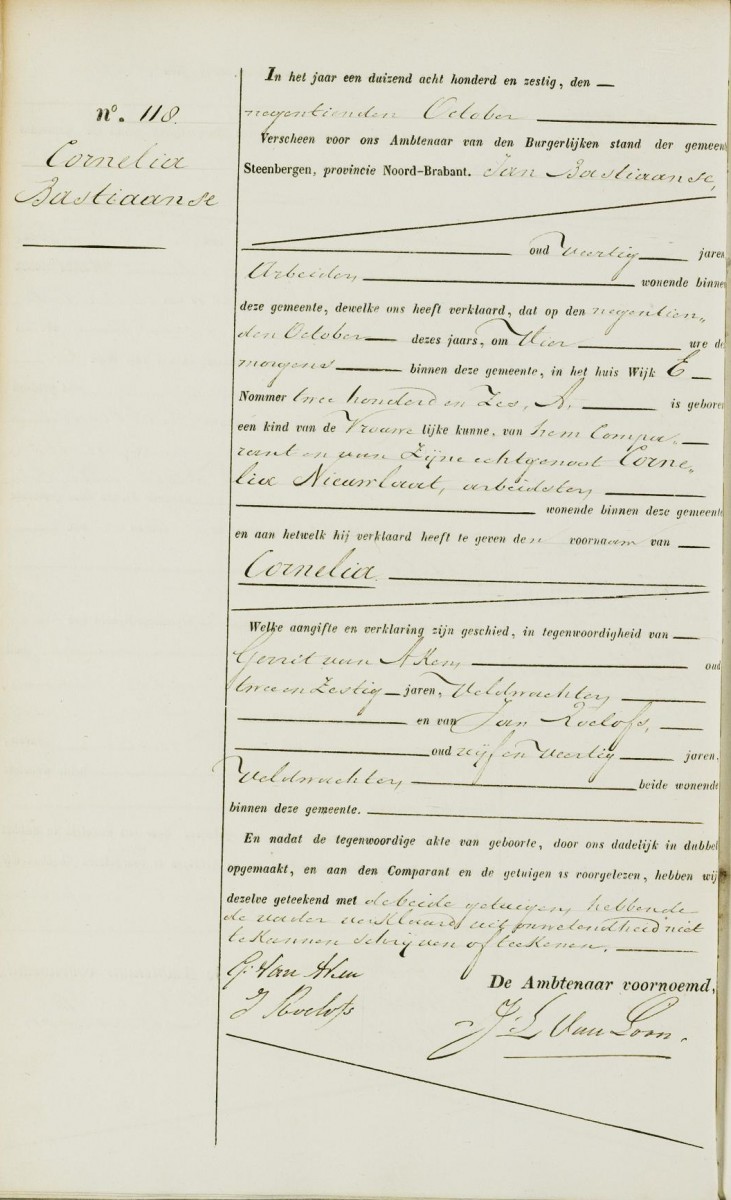 n°. 118.
Cornelia
Bastiaanse
In het jaar een duizend acht honderd en zestig, den
negentienden October
Verscheen voor ons Ambtenaar van den Burgerlijken stand der gemeente
Steenbergen, provincie Noord-Brabant. Jan Bastiaanse,
oud Veertig jaren
Arbeider, wonende binnen
deze gemeente, dewelke ons heeft verklaard, dat op den negentien„
den October dezes jaars, om Vier ure des
morgens binnen deze gemeente, in het huis Wijk E
Nommer twee honderd en Zes, A, is geboren
een kind van de Vrouwelijke kunne, van hem Compa„
rant en van Zijne echtgenoot Corne„
lia Nieuwlaat, arbeidster,
wonende binnen deze gemeente
en aan hetwelk hij verklaard heeft te geven den voornaam van
Cornelia.
Welke aangifte en verklaring zijn geschied, in tegenwoordigheid van
Gerrit van Aken, oud
twee en Zestig jaren, Veldwachter,
en van Jan Roelofs,
oud vijf en Veertig jaren,
Veldwachter, beide wonende
binnen deze gemeente.
En nadat de tegenwoordige akte van geboorte, door ons dadelijk in dubbel
opgemaakt, en aan den Comparant en de getuigen is voorgelezen, hebben wij
dezelve geteekend met de beide getuigen, hebbende
de vader verklaard uit onwetendheid niet
te kunnen schrijven of teekenen.
G. Van Aken
De Ambtenaar voornoemd,
J Roelofs
J. L Van Loon.